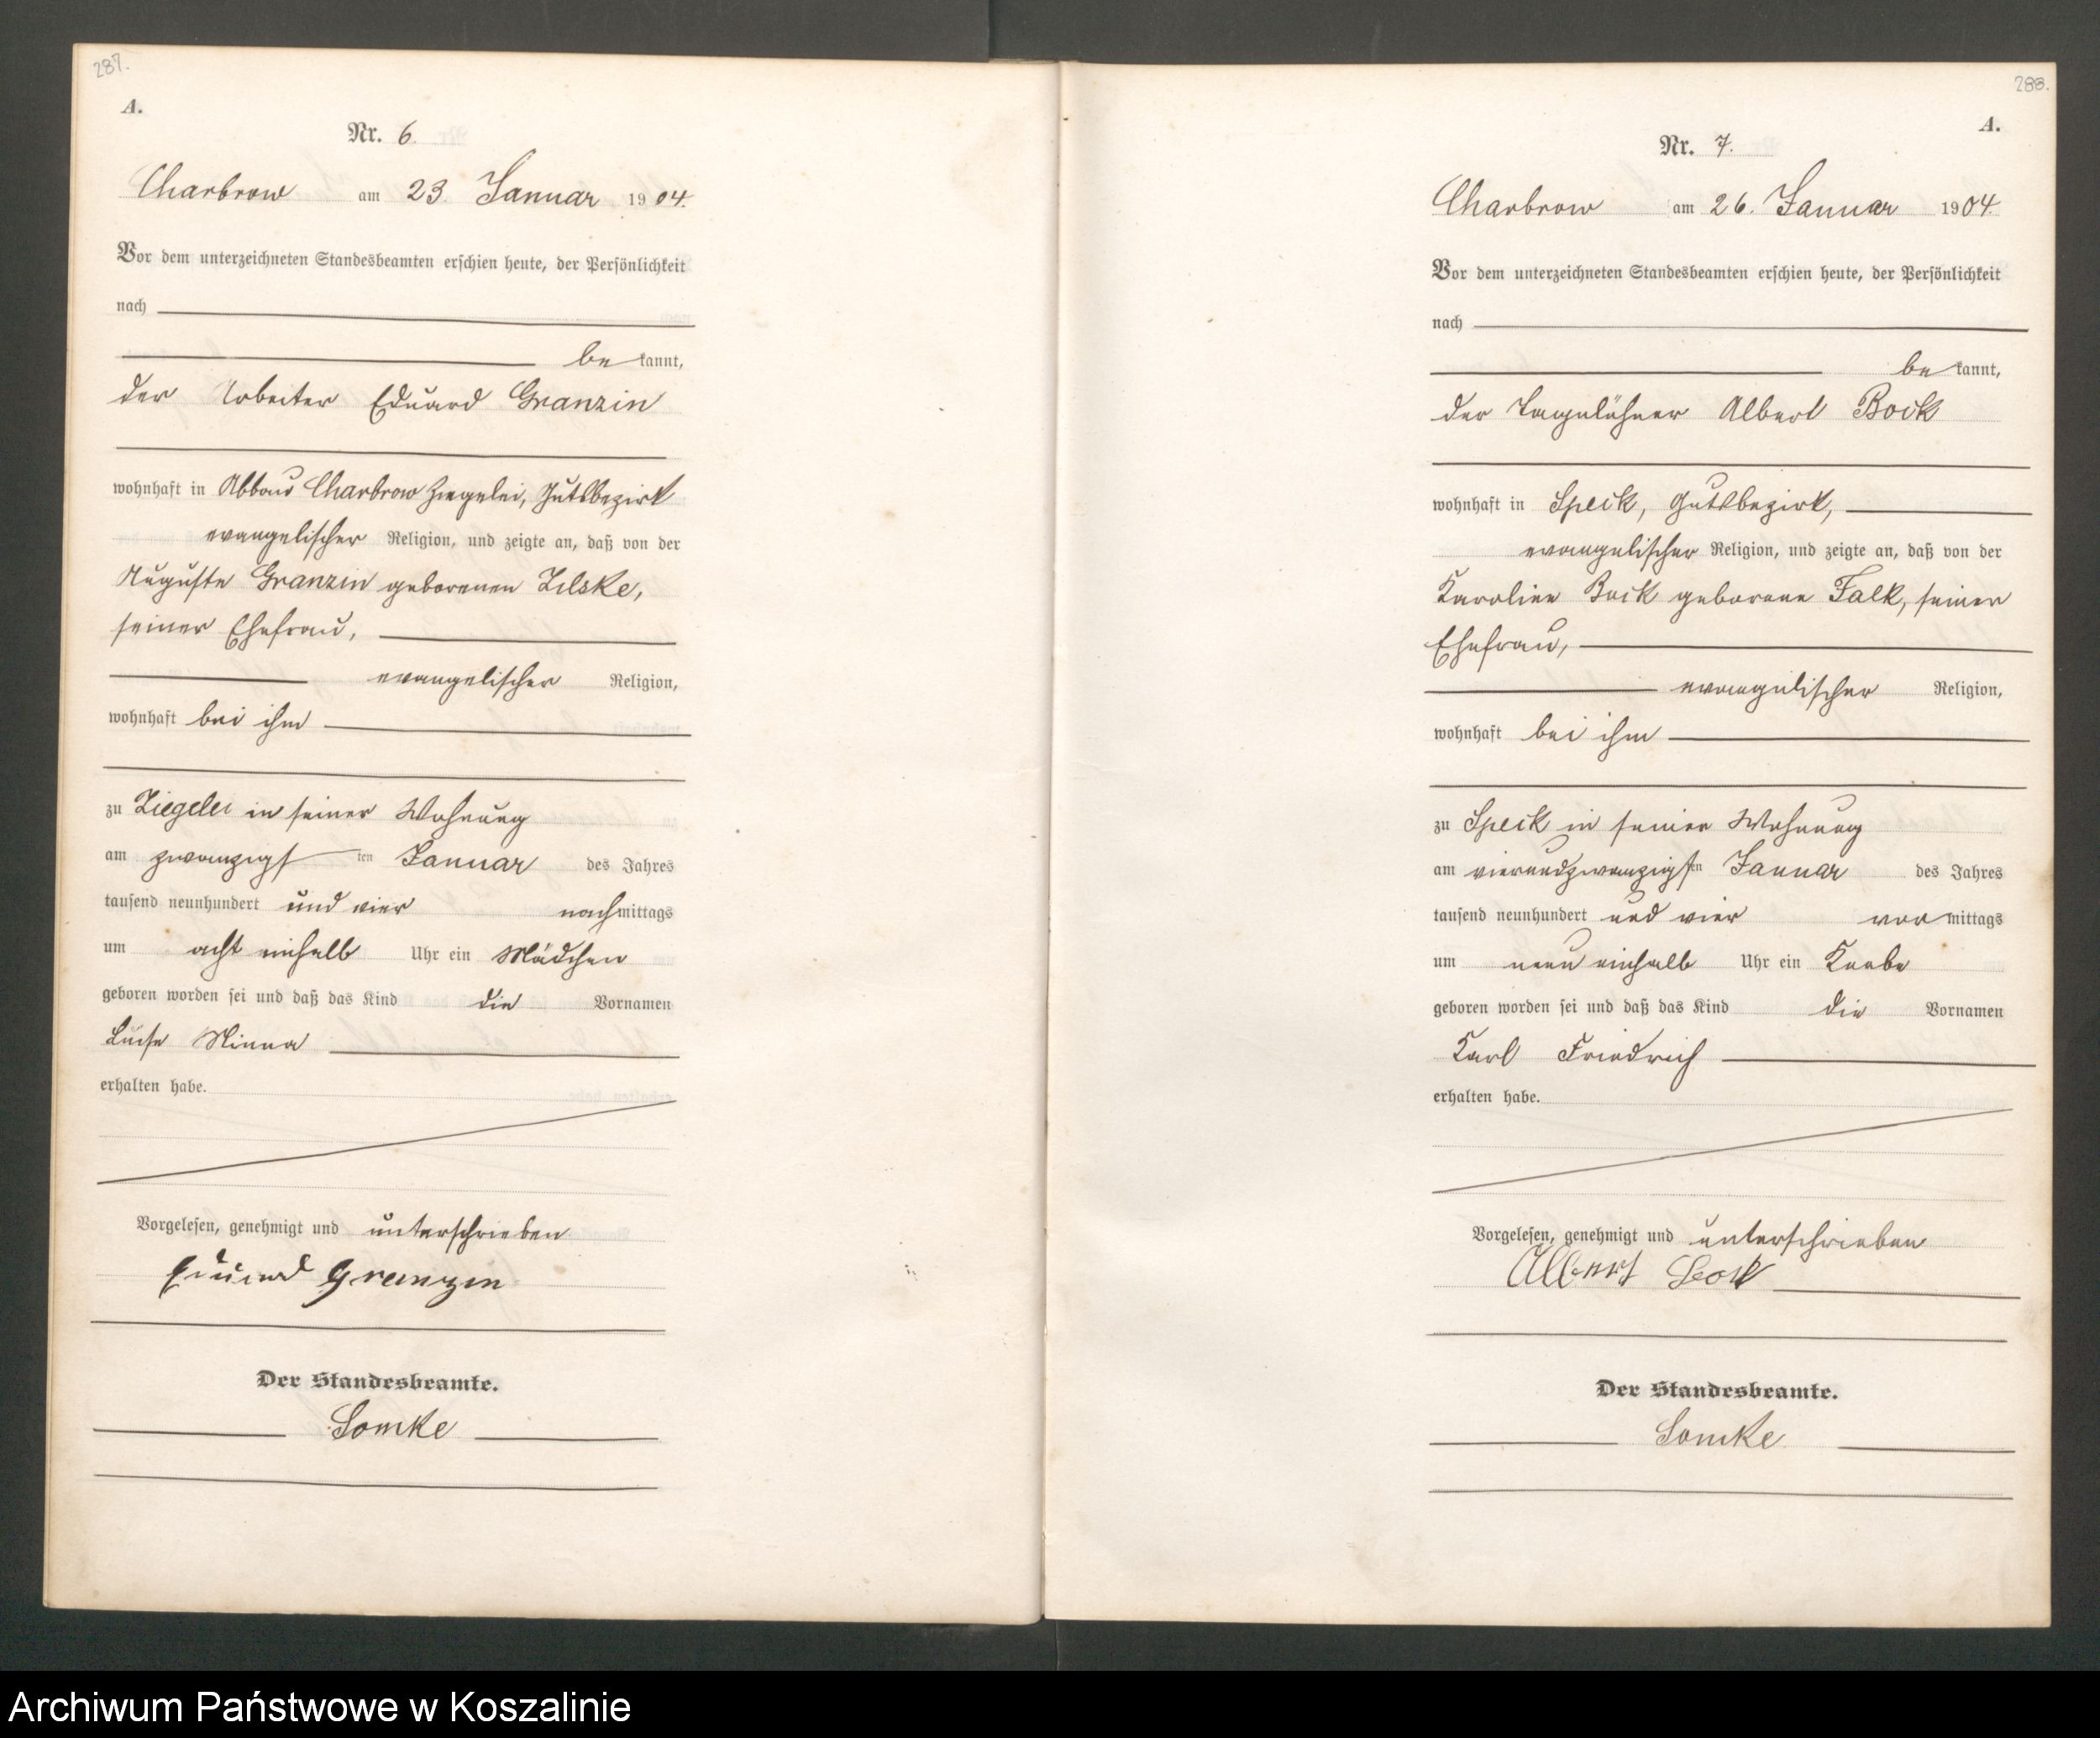 287.
A.
Nr. 6.
Charbrow am 23. Januar 1904.
Vor dem unterzeichneten Standesbeamten erschien heute, der Persönlichkeit
nach
be kannt,
der Arbeiter Eduard Granzin
wohnhaft in Abbau Charbrow Ziegelei, Gutsbezirk
evangelischer Religion, und zeigte an, daß von der
Auguste Granzin geborenen Zilske,
seiner Ehefrau,
evangelischer Religion,
wohnhaft bei ihm
zu Ziegelei in seiner Wohnung
am zwanzigsten Januar des Jahres
tausend neunhundert und vier nachmittags
um acht einhalb Uhr ein Mädchen
geboren worden sei und daß das Kind die Vornamen
Luise Minna
erhalten habe.
Vorgelesen, genehmigt und unterschrieben
Eduard Granzin
Der Standesbeamte.
Lomke
288.
A.
Nr. 7.
Charbrow am 26. Januar 1904.
Vor dem unterzeichneten Standesbeamten erschien heute, der Persönlichkeit
nach
be kannt,
der Tagelöhner Albert Bock
wohnhaft in Speck, Gutsbezirk,
evangelischer Religion, und zeigte an, daß von der
Karoline Bock geborene Falk, seiner
Ehefrau,
evangelischer Religion,
wohnhaft bei ihm
zu Speck in seiner Wohnung
am vierundzwanzigsten Januar des Jahres
tausend neunhundert und vier vormittags
um neun einhalb Uhr ein Knabe
geboren worden sei und daß das Kind die Vornamen
Karl Friedrich
erhalten habe.
Vorgelesen, genehmigt und unterschrieben
Albert Bock
Der Standesbeamte.
Lomke
Archiwum Państwowe w Koszalinie